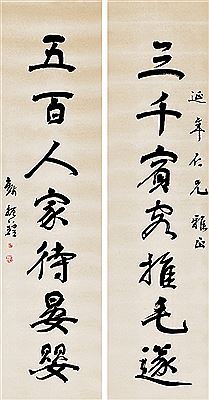 延年仁兄雅正
三千賓客推毛遂
五百人家待晏嬰